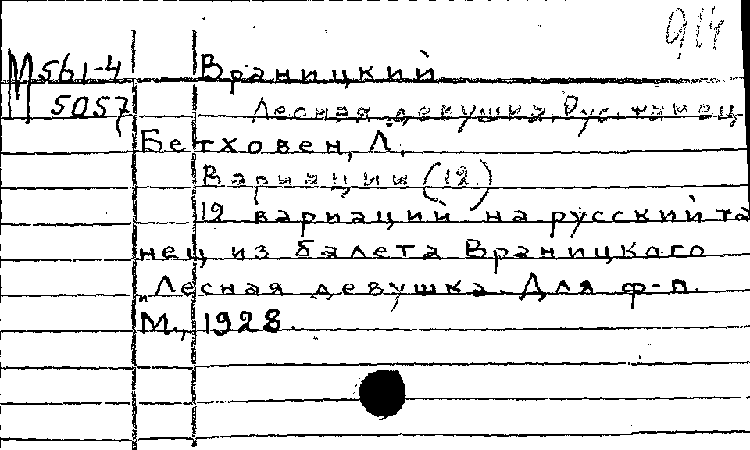 914
М 561-4 Враницкий
5057 Лесная девушка. Рус. танец
Бетховен, Л.
Вариации (12)
12 вариаций на русский та
нец из балета Враницкаго
„Лесная девушка. Для ф-п.
М., 1928.